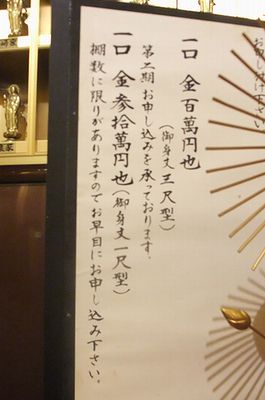 お申し付け下さい
一口 金百萬円也
(御身丈 三尺型)
第二期お申し込みを承っております。
一口 金参拾萬円也(御身丈 一尺型)
棚数に限りがありますのでお早目にお申し込み下さい。